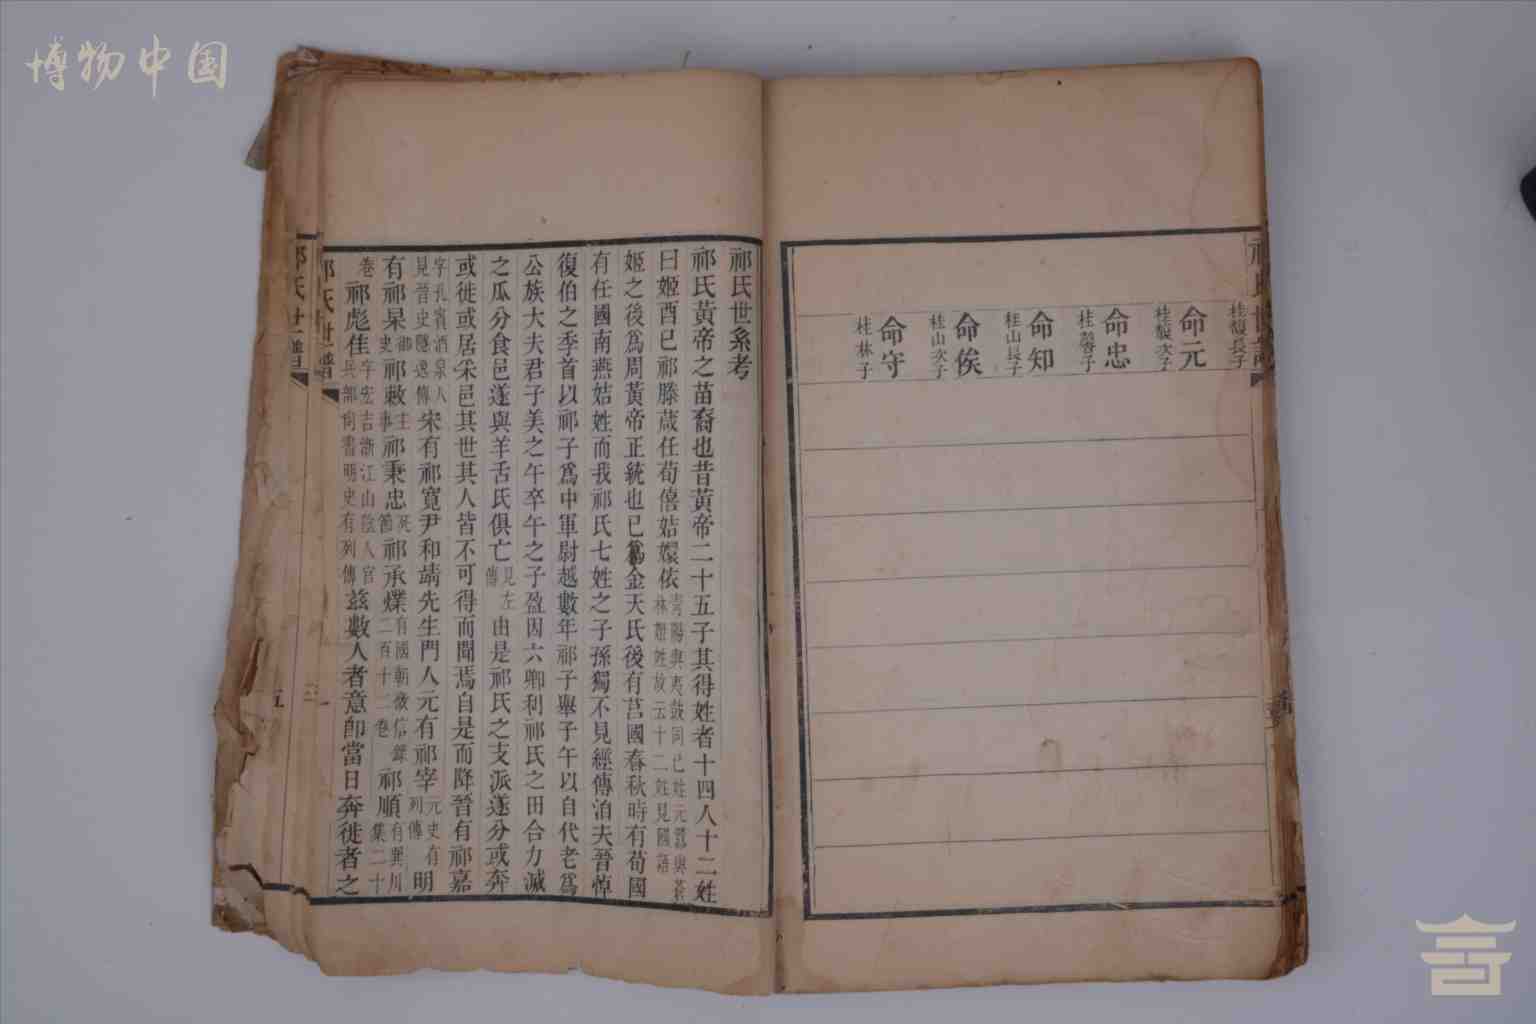 博物中国
桂馥長子
命元
桂馥次子
命忠
桂馨子
命知
桂山長子
命俟
桂山次子
命守
桂林子
祁氏世系考
祁氏黃帝之苗裔也昔黃帝二十五子其得姓者十四人十二姓
曰姬酉已祁滕葴任荀僖姞嬛依青陽與夷鼓同已姓元囂與蒼林姬姓故云十二姓見國語
姬之後為周黃帝正統也已為金天氏後有莒國春秋時有荀國
有任國南燕姞姓而我祁氏七姓之子孫獨不見經傳洎夫晉悼
復伯之季首以祁子為中軍尉越數年祁子舉子午以自代老為
公族大夫君子美之午卒午之子盈因六卿利祁氏之田合力滅
之瓜分食邑遂與羊舌氏俱亡見左傳由是祁氏之支派遂分或奔
或徙或居采邑其世其人皆不可得而聞焉自是而降晉有祁嘉
字孔賓酒泉人見晉史隱逸傳宋有祁寬尹和靖先生門人元有祁宰元史有列傳明
有祁杲御史祁敕主事祁秉忠死節祁承㸁有國朝徵信錄二百十二卷祁順有巽川集二十
卷祁彪佳字宏吉浙江山陰人官兵部尚書明史有列傳茲數人者意卽當日奔徙者之
祁氏世譜
一
祁氏世譜
五